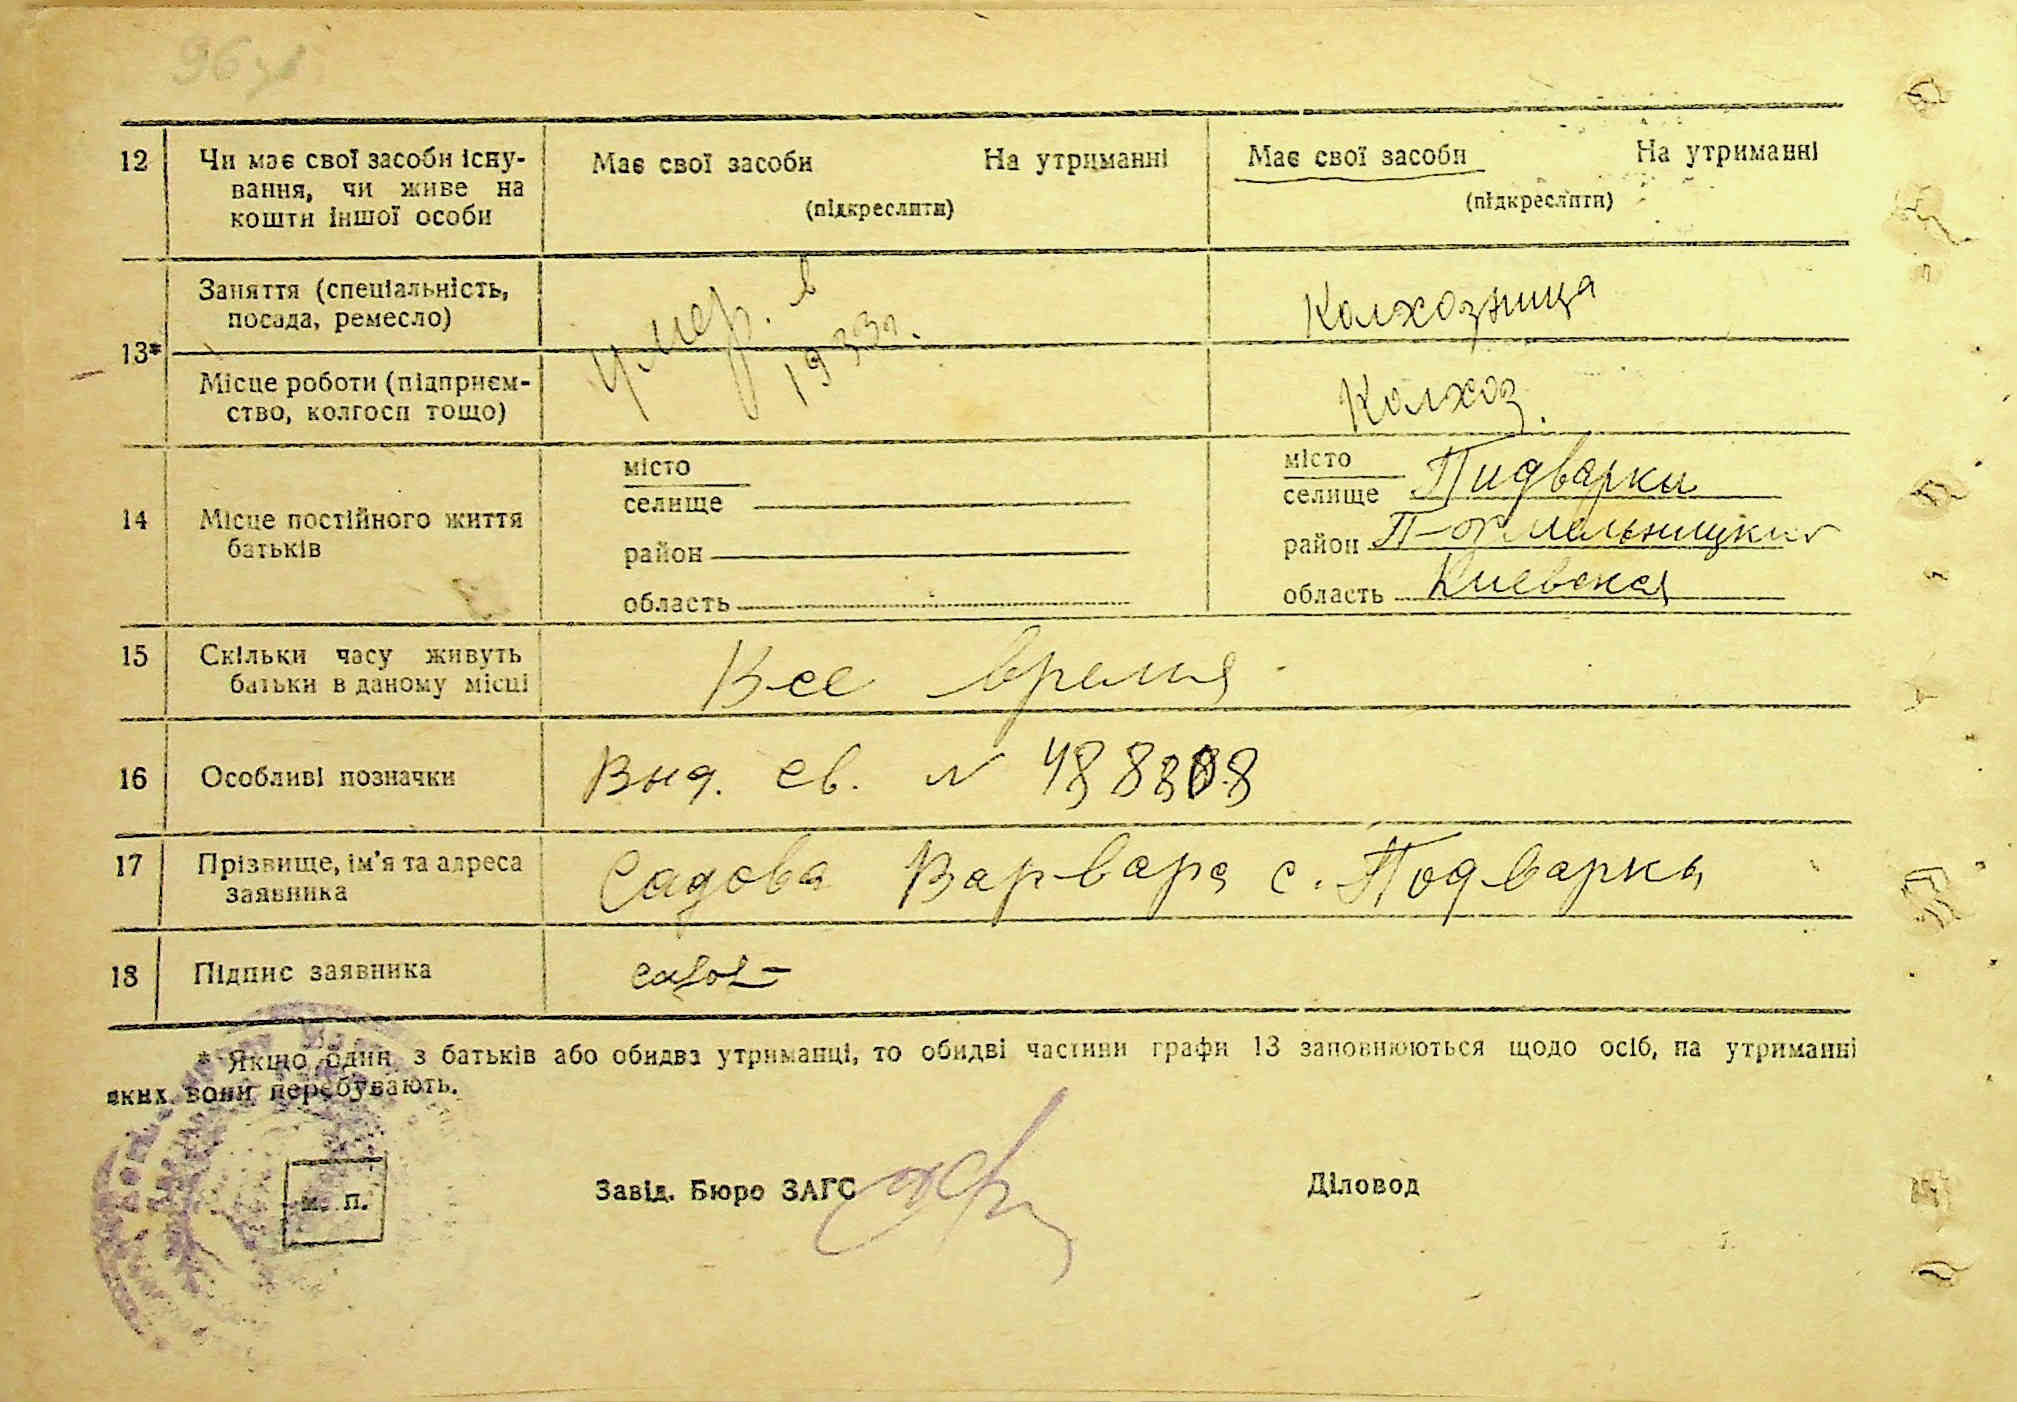 96
12 Чи має свої засоби існу-
вання, чи живе на
кошти іншої особи
Має свої засоби На утриманні
(підкреслити)
Має свої засоби На утриманні
(підкреслити)
13* Заняття (спеціальність,
посада, ремесло)
умер. в
1933 г.
Колхозница
Місце роботи (підприєм-
ство, колгосп тощо)
Колхоз.
14 Місце постійного життя
батьків
місто
селище
район
область
місто
селище Пидварки
район П-Хмельницкий
область Киевская
15 Скільки часу живуть
батьки в даному місці
Все время
16 Особливі позначки Выд. св. №
17 Прізвище, ім'я та адреса
заявника
Садова Варвара с. Подварки
18 Підпис заявника
* Якщо один з батьків або обидва утриманці, то обидві частини графи 13 заповнюються щодо осіб, на утриманні
яких вони перебувають.
м. п.
Завід. Бюро ЗАГС Діловод